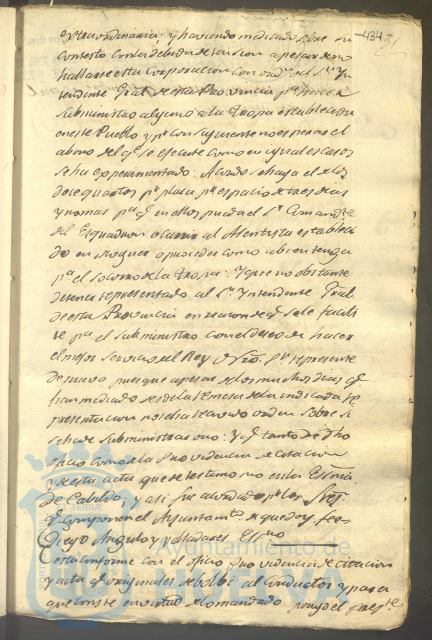 434
extraordinaria: y haviendo meditado sobre su
contexto con la debida detencion apesar de no
hallarse esta Corporacion con orden del Sr. Yn
tendente Gral de esta Provincia pa. hacer
Subministro alguno a la Tropa establecida
en este Pueblo y pr. consiguiente no esperar el
abono del qe. se ejecute como en iguales casos
se ha experimentado: Acordó
doce quartos pr. plaza pr. espacio de tres dias
y no mas pa. qe. en ellos pueda el Sr. Comandte
del Esquadron ocurrir al Asentista establecí
do en Moguer o proceder como
pa. el socorro de la Tropa: Y que no obstante
de tener representado al Sr. Yntendente Gral
de esta Provincia en razon de qe. se le facili
te pa. el Subministro con el deseo de hacer
el mejor servicio del Rey se represente
de nuevo, pues que apesar de los muchos dias qe.
han mediado desde la remesa de la indicada re
presentacion no se ha recivido orden sobre si
se hace Subministro o no: Y qe. tanto de dho
oficio como de la Providencia de citacion
y de esta acta quede testimonio en la Essnia
de Cabildo; y asi fue acordado pr. los Sres
qe. componen el Ayuntamto. de que doy fee=
Diego Angulo y Valladares Essno
Está conforme con el oficio providencia de citacion
y acta qe. originales debolbi al conductor y para
que conste en virtud de lo mandado pongo el preste
Ayuntamiento de
HUELVA